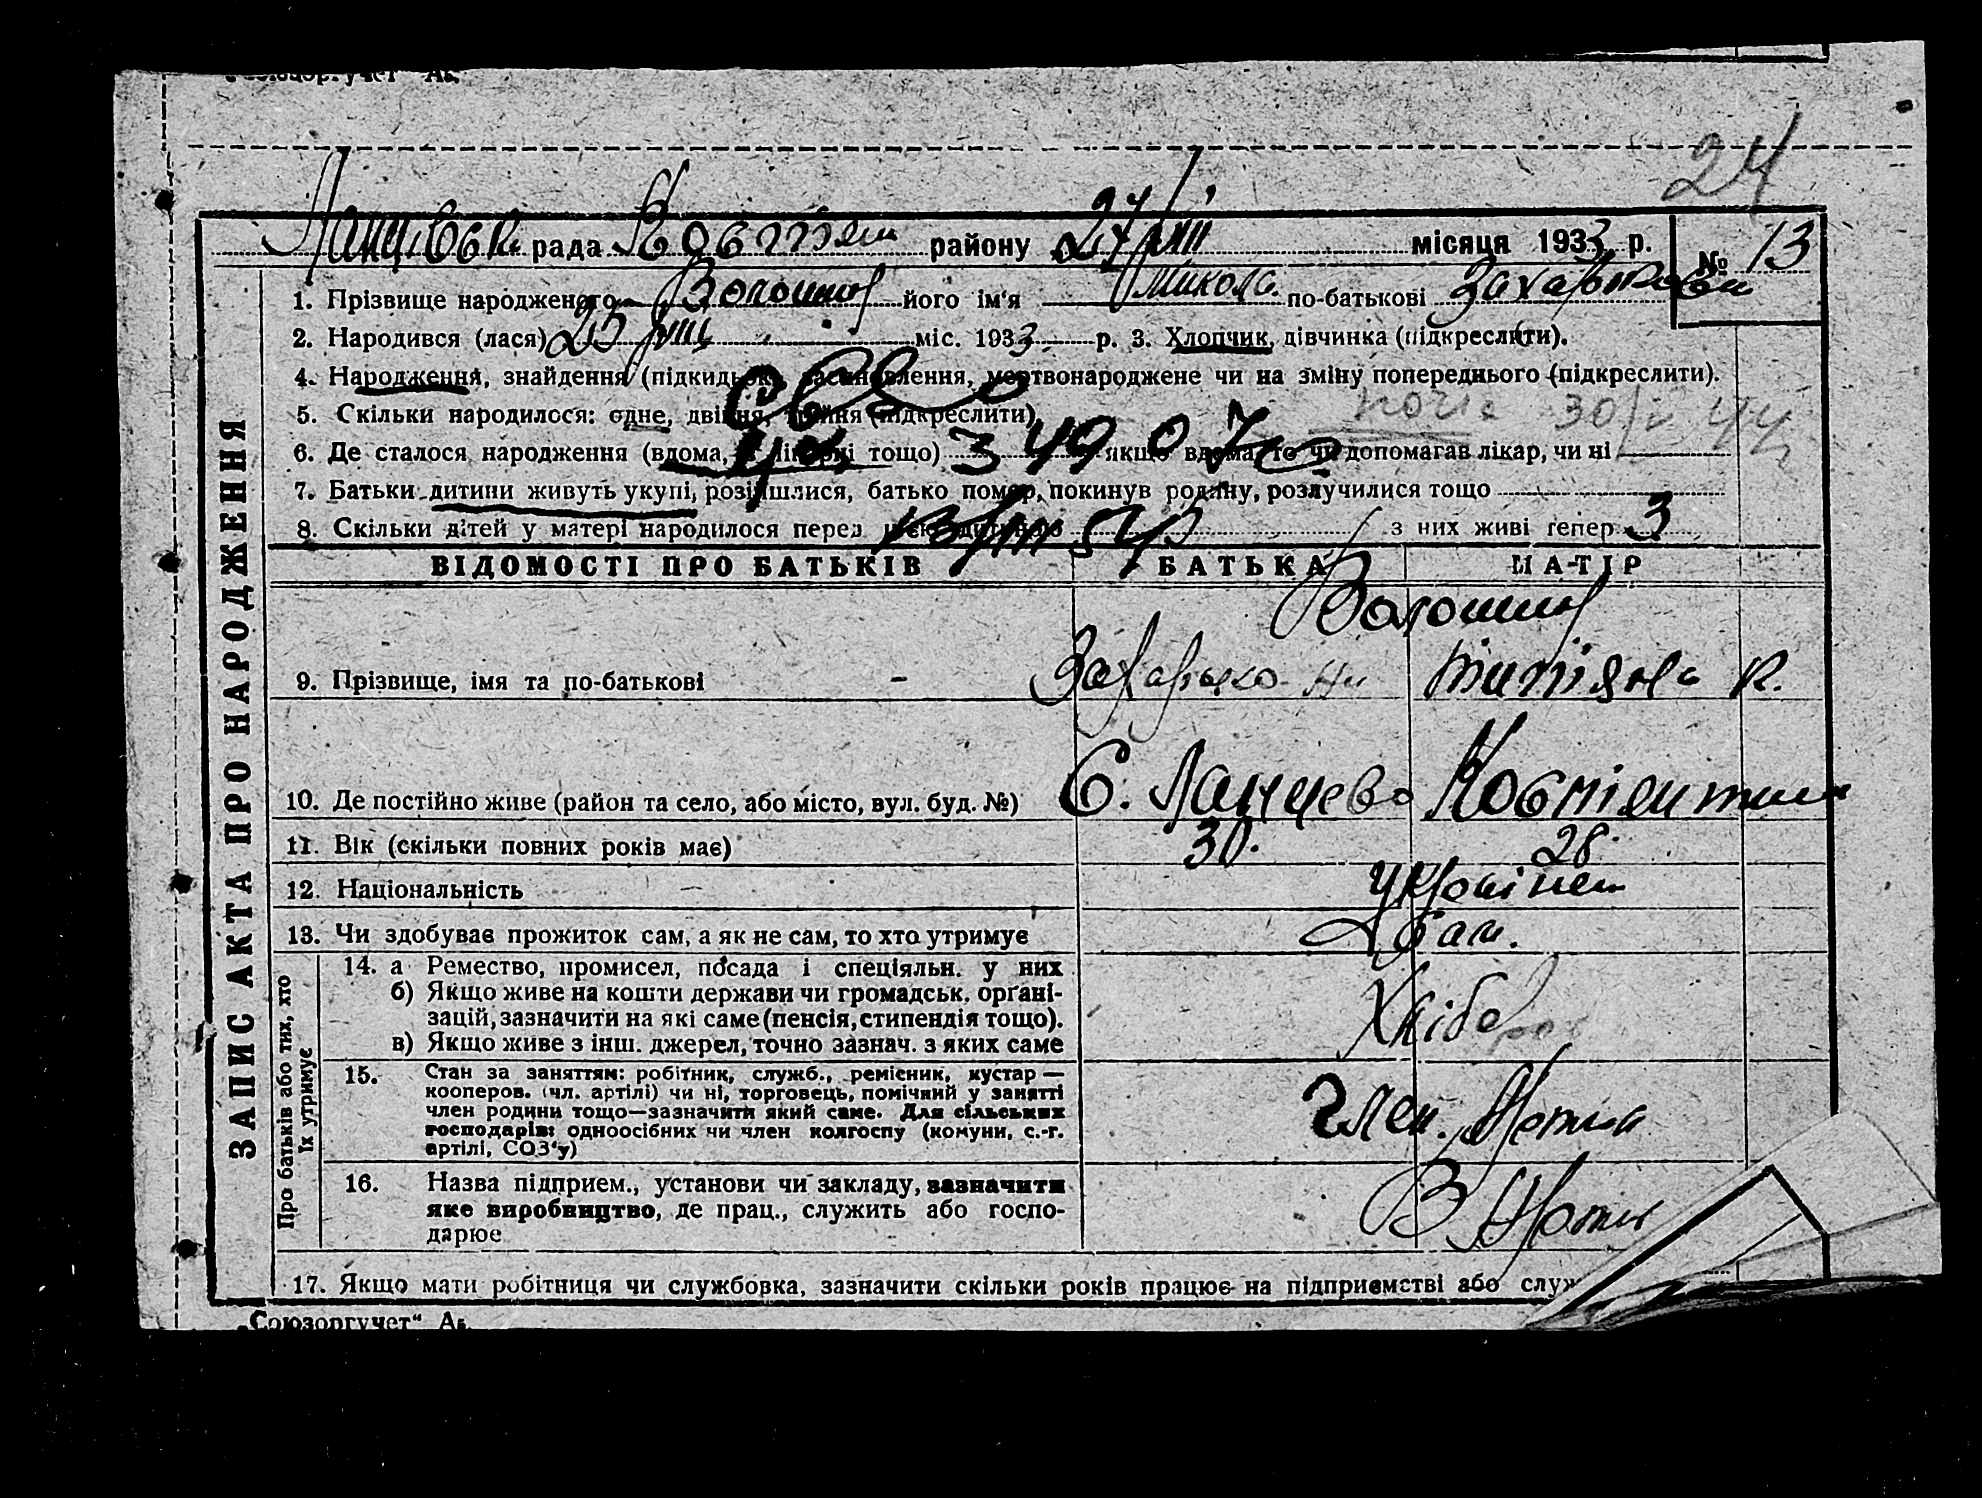 „Союзоргучет“
24
Ланцівськ рада Ковтян району 24/VIII місяця 1933 р. № 13
1. Прізвище народженого Волошин його ім'я Микола по-батькові Захарькови
2. Народився (лася) 25 міс. 1933 р. 3. Хлопчик, дівчинка (підкреслити).
4. Народження, знайдення (підкидьок, мертвонароджене чи на зміну попереднього (підкреслити).
5. Скільки народилося: одне, двійня, трійня (підкреслити)
6. Де сталося народження (вдома, в лікарні тощо) 34907 якщо вдома, то чи допомагав лікар, чи ні
7. Батьки дитини живуть укупі, розійшлися, батько помер, покинув родину, розлучилися тощо
8. Скільки дітей у матері народилося перед цією дитиною з них живі тепер 3
ВІДОМОСТІ ПРО БАТЬКІВ БАТЬКА МАТІР
Волошин
9. Прізвище, імя та по-батькові Захарько К.
10. Де постійно живе (район та село, або місто, вул. буд. №) С. Ланцево
11. Вік (скільки повних років має) 30. 28.
12. Національність Україн
13. Чи здобував прожиток сам, а як не сам, то хто утримує сам.
14. а Ремество, промисел, посада і спеціяльн. у них
б) Якщо живе на кошти держави чи громадськ. організацій, зазначити на які саме (пенсія, стипендія тощо). Хлібороб
в) Якщо живе з інш. джерел, точно зазнач. з яких саме
15. Стан за заняттям: робітник, служб., ремісник, кустар —
кооперов. (чл. артілі) чи ні, торговець, помічний у занятті
член родини тощо—зазначити який саме. Для сільських
господарів: одноосібних чи член колгоспу (комуни, с.-г.
артілі, СОЗ'у) Член. Артил
16. Назва підприєм., установи чи закладу, зазначити
яке виробництво, де прац., служить або госпо-
дарює В Артил
17. Якщо мати робітниця чи службовка, зазначити скільки років працює на підприємстві або служ
ЗАПИС АКТА ПРО НАРОДЖЕННЯ
Про батьків або тих, хто
їх утримує
„Союзоргучет“